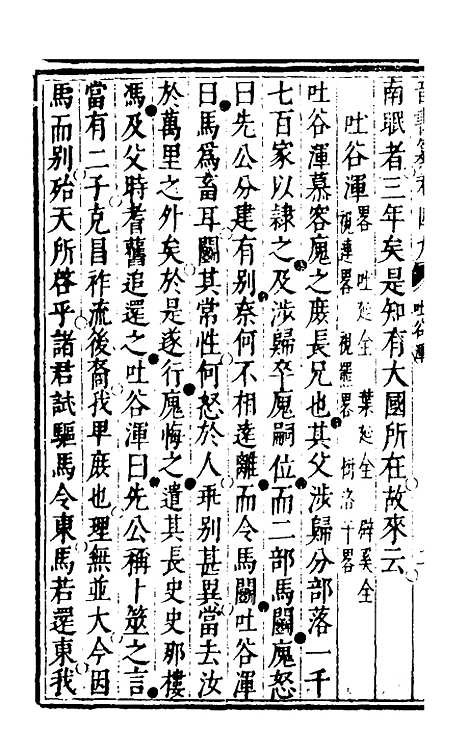 吐谷渾
南眂者三年矣是知有大國所在故來云
吐谷渾畧 吐延全 葉延全 辟奚全 視連畧 視羆畧 樹洛干畧
吐谷渾慕容廆之庶長兄也其父涉歸分部落一千
七百家以隸之及涉歸卒廆嗣位而二部馬鬬廆怒
曰先公分建有别奈何不相遠離而令馬鬬吐谷渾
曰馬爲畜耳鬬其常性何怒於人乖别甚異當去汝
於萬里之外矣於是遂行廆悔之遣其長史史那樓
馮及父時耆舊追還之吐谷渾曰先公稱卜筮之言
當有二子克昌祚流後裔我卑庶也理無並大今因
馬而别殆天所啓乎諸君試驅馬令東馬若還東我